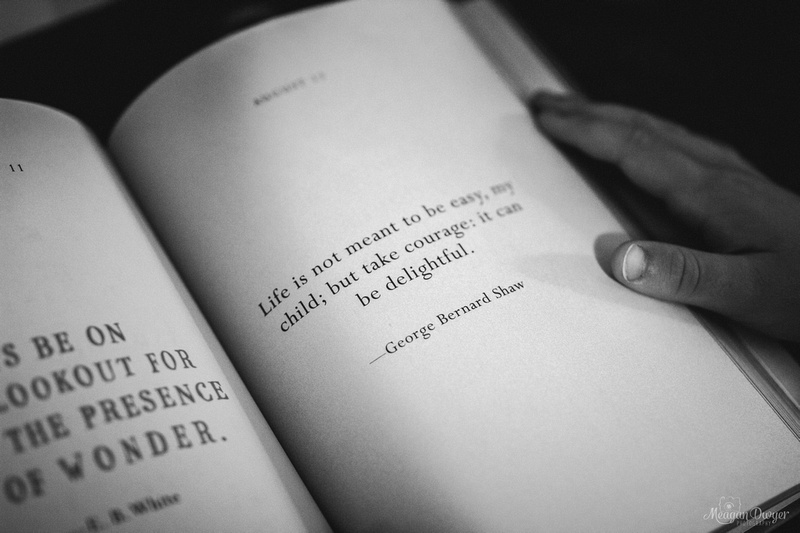 11
S BE ON
LOOKOUT FOR
THE PRESENCE
OF WONDER.
E. B. White
AUGUST 12
Life is not meant to be easy, my
child; but take courage: it can
be delightful.
—George Bernard Shaw
Meagan Dwyer
PHOTOGRAPHY